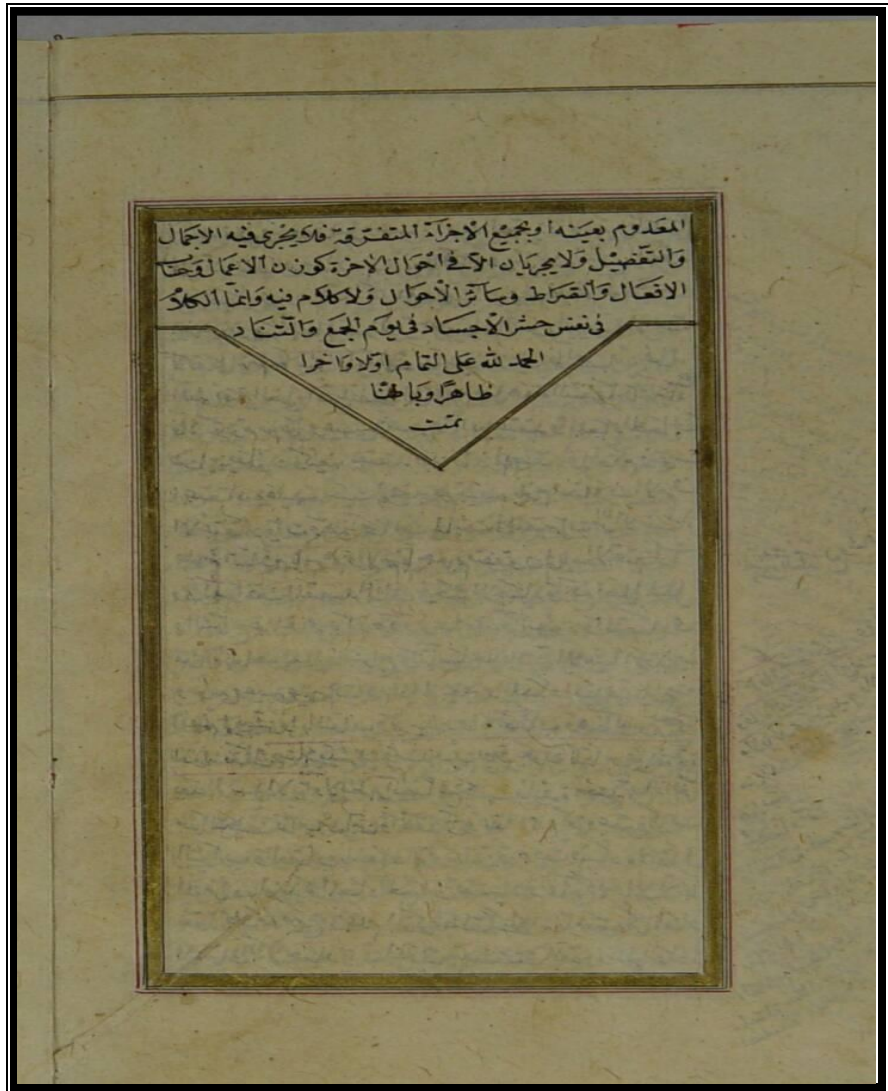 المعدوم بعينه او بجميع الاجزاء المتفرقة فلا يجرى فيه الاجمال
والتفصيل ولا يجريان الا فى احوال الاخرة كوزن الاعمال وحساب
الافعال والصراط وسائر الاحوال ولا كلام فيه وانما الكلام
فى نفس حشر الاجساد فى يوم الجمع والتناد
الحمد لله على التمام اولا واخرا
ظاهرا وباطنا
تمت